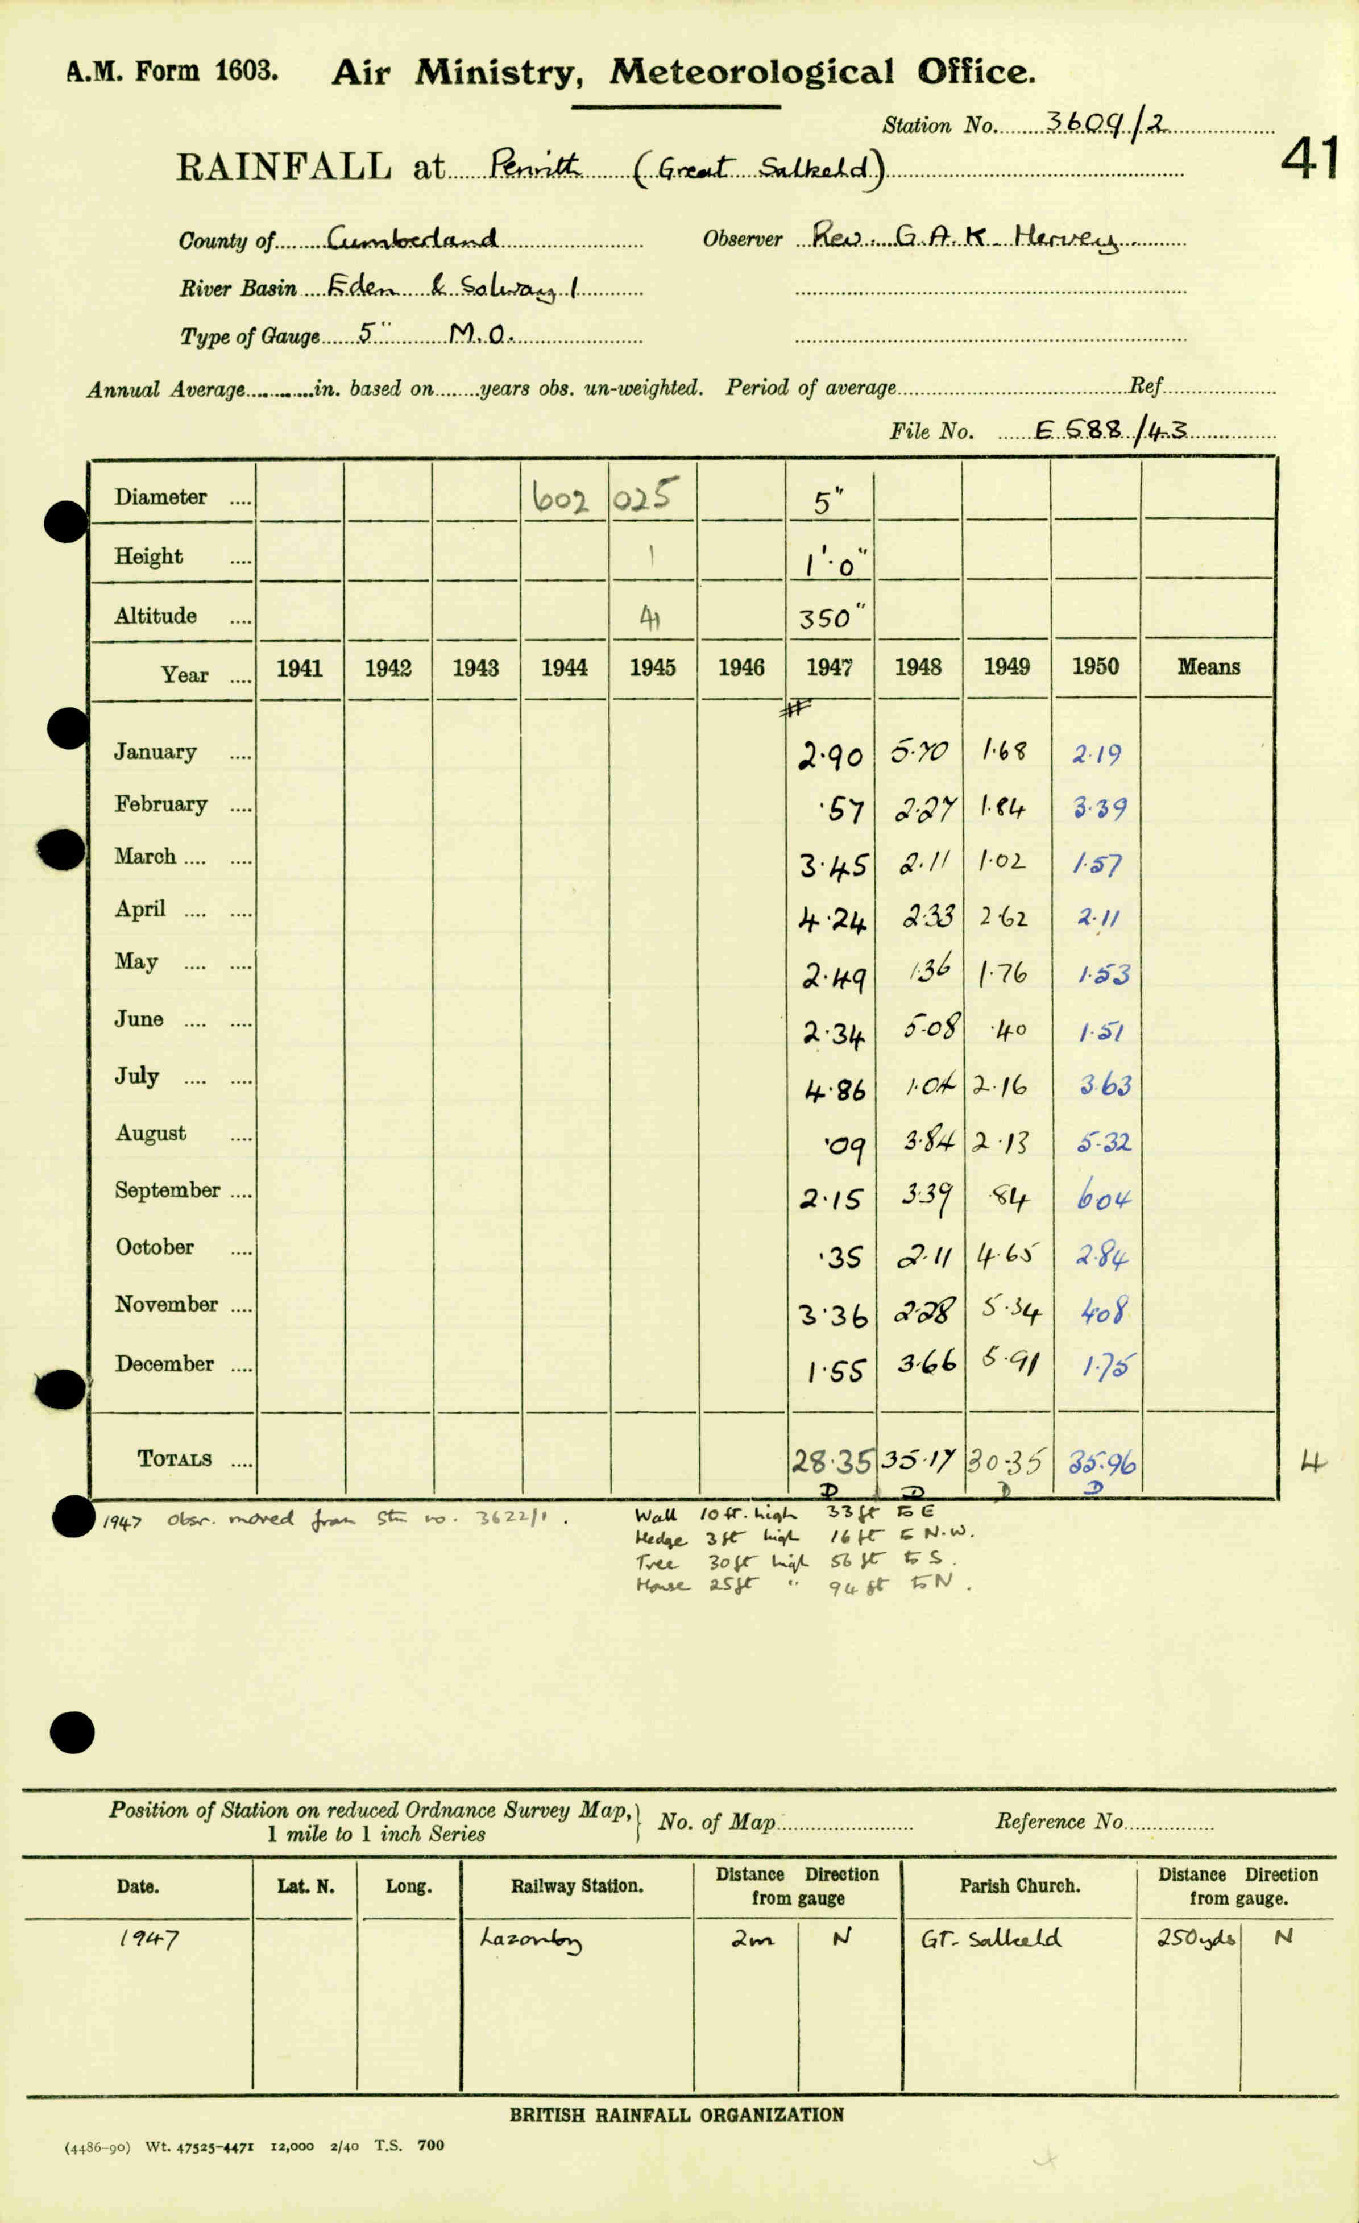 A.M. Form 1603. Air Ministry, Meteorological Office.
Station No. 3609/2
41
RAINFALL at Penrith (Great Salkeld)
County of Cumberland Observer Rev. G.A.K. Hervey
River Basin Eden & Solway 1
Type of Gauge 5" M.O.
Annual Average............in. based on........years obs. un-weighted. Period of average Ref
File No. E 588/43
Diameter .... 602 025 5"
Height .... 1 1'.0"
Altitude .... 41 350"
Year .... 1941 1942 1943 1944 1945 1946 1947 1948 1949 1950 Means
#
January .... 2.90 5.70 1.68 2.19
February .... .57 2.27 1.84 3.39
March .... .... 3.45 2.11 1.02 1.57
April .... .... 4.24 2.33 2.62 2.11
May .... .... 2.49 1.36 1.76 1.53
June .... .... 2.34 5.08 .40 1.51
July .... .... 4.86 1.04 2.16 3.63
August .... .09 3.84 2.13 5.32
September .... 2.15 3.39 .84 6.04
October .... .35 2.11 4.65 2.84
November .... 3.36 2.28 5.34 4.08
December .... 1.55 3.66 5.91 1.75
TOTALS .... 28.35 35.17 30.35 35.96 4
D D D D
1947 obsr. moved from stn no. 3622/1.
Wall 10 ft. high 33 ft to E
Hedge 3 ft high 16 ft to N.W.
Tree 30 ft high 56 ft to S.
House 25 ft " 94 ft to N.
Position of Station on reduced Ordnance Survey Map, } No. of Map Reference No.
1 mile to 1 inch Series
Date. Lat. N. Long. Railway Station. Distance Direction from gauge Parish Church. Distance Direction from gauge.
1947 Lazonby 2m N GT. Salkeld 250 yds N
BRITISH RAINFALL ORGANIZATION
(4486-90) Wt. 47525-4471 12,000 2/40 T.S. 700